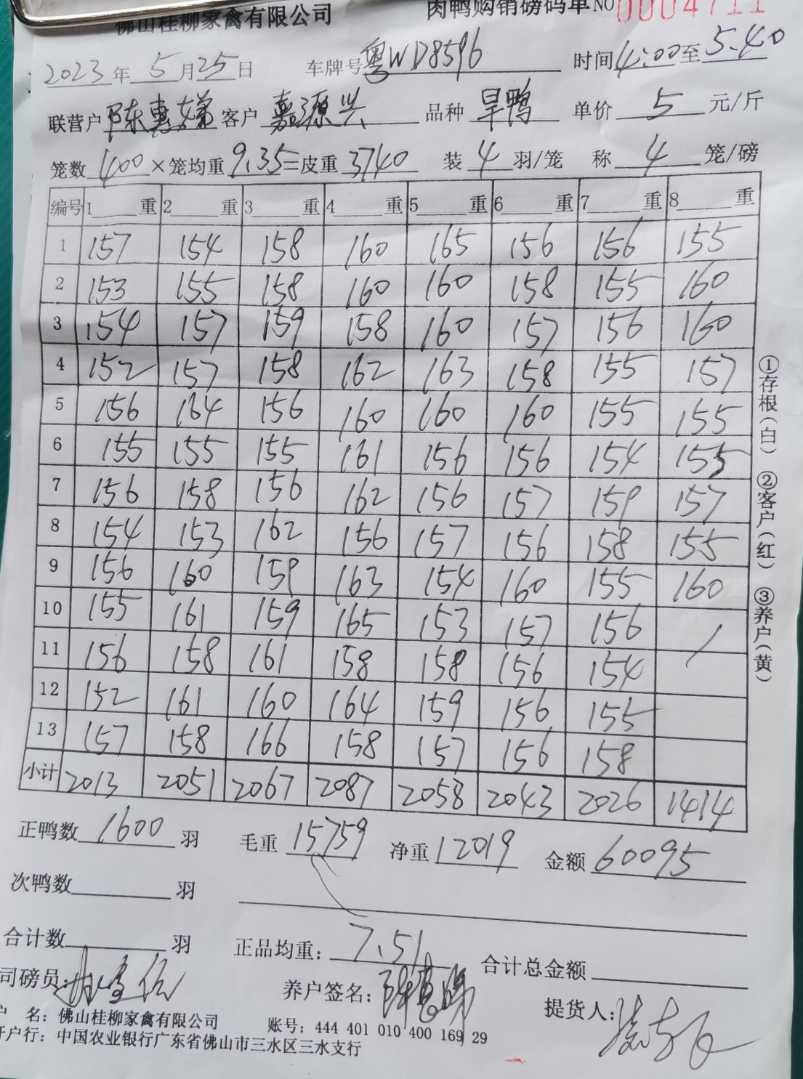 佛山桂柳家禽有限公司 肉鸭购销磅码单 NO 0004711
2023年5月25日 车牌号 粤WD8596 时间 4:00至5:40
联营户 陈惠娣 客户 嘉源兴 品种 旱鸭 单价 5 元/斤
笼数 400 ×笼均重 9.35=皮重 3740 装 4 羽/笼 称 4 笼/磅
编号 1 重 2 重 3 重 4 重 5 重 6 重 7 重 8 重
1 157 154 158 160 165 156 156 155
2 153 155 158 160 160 158 155 160
3 154 157 159 158 160 157 156 160
4 152 157 158 162 163 158 155 157
5 156 164 156 160 160 160 155 155
6 155 155 155 161 156 156 154 155
7 156 158 156 162 156 157 159 157
8 154 153 162 156 157 156 158 155
9 156 160 159 163 154 160 155 160
10 155 161 159 165 153 157 156 /
11 156 158 161 158 158 156 154
12 152 161 160 164 159 156 155
13 157 158 166 158 157 156 158
小计 2013 2051 2067 2087 2058 2043 2026 1414
正鸭数 1600 羽 毛重 15759 净重 12019 金额 60095
次鸭数 羽
合计数 羽 正品均重: 7.51 合计总金额
司磅员: 养户签名: 陈惠娣 提货人:
户 名: 佛山桂柳家禽有限公司 账号: 444 401 010 400 169 29
开户行: 中国农业银行广东省佛山市三水区三水支行
①存根(白) ②客户(红) ③养户(黄)